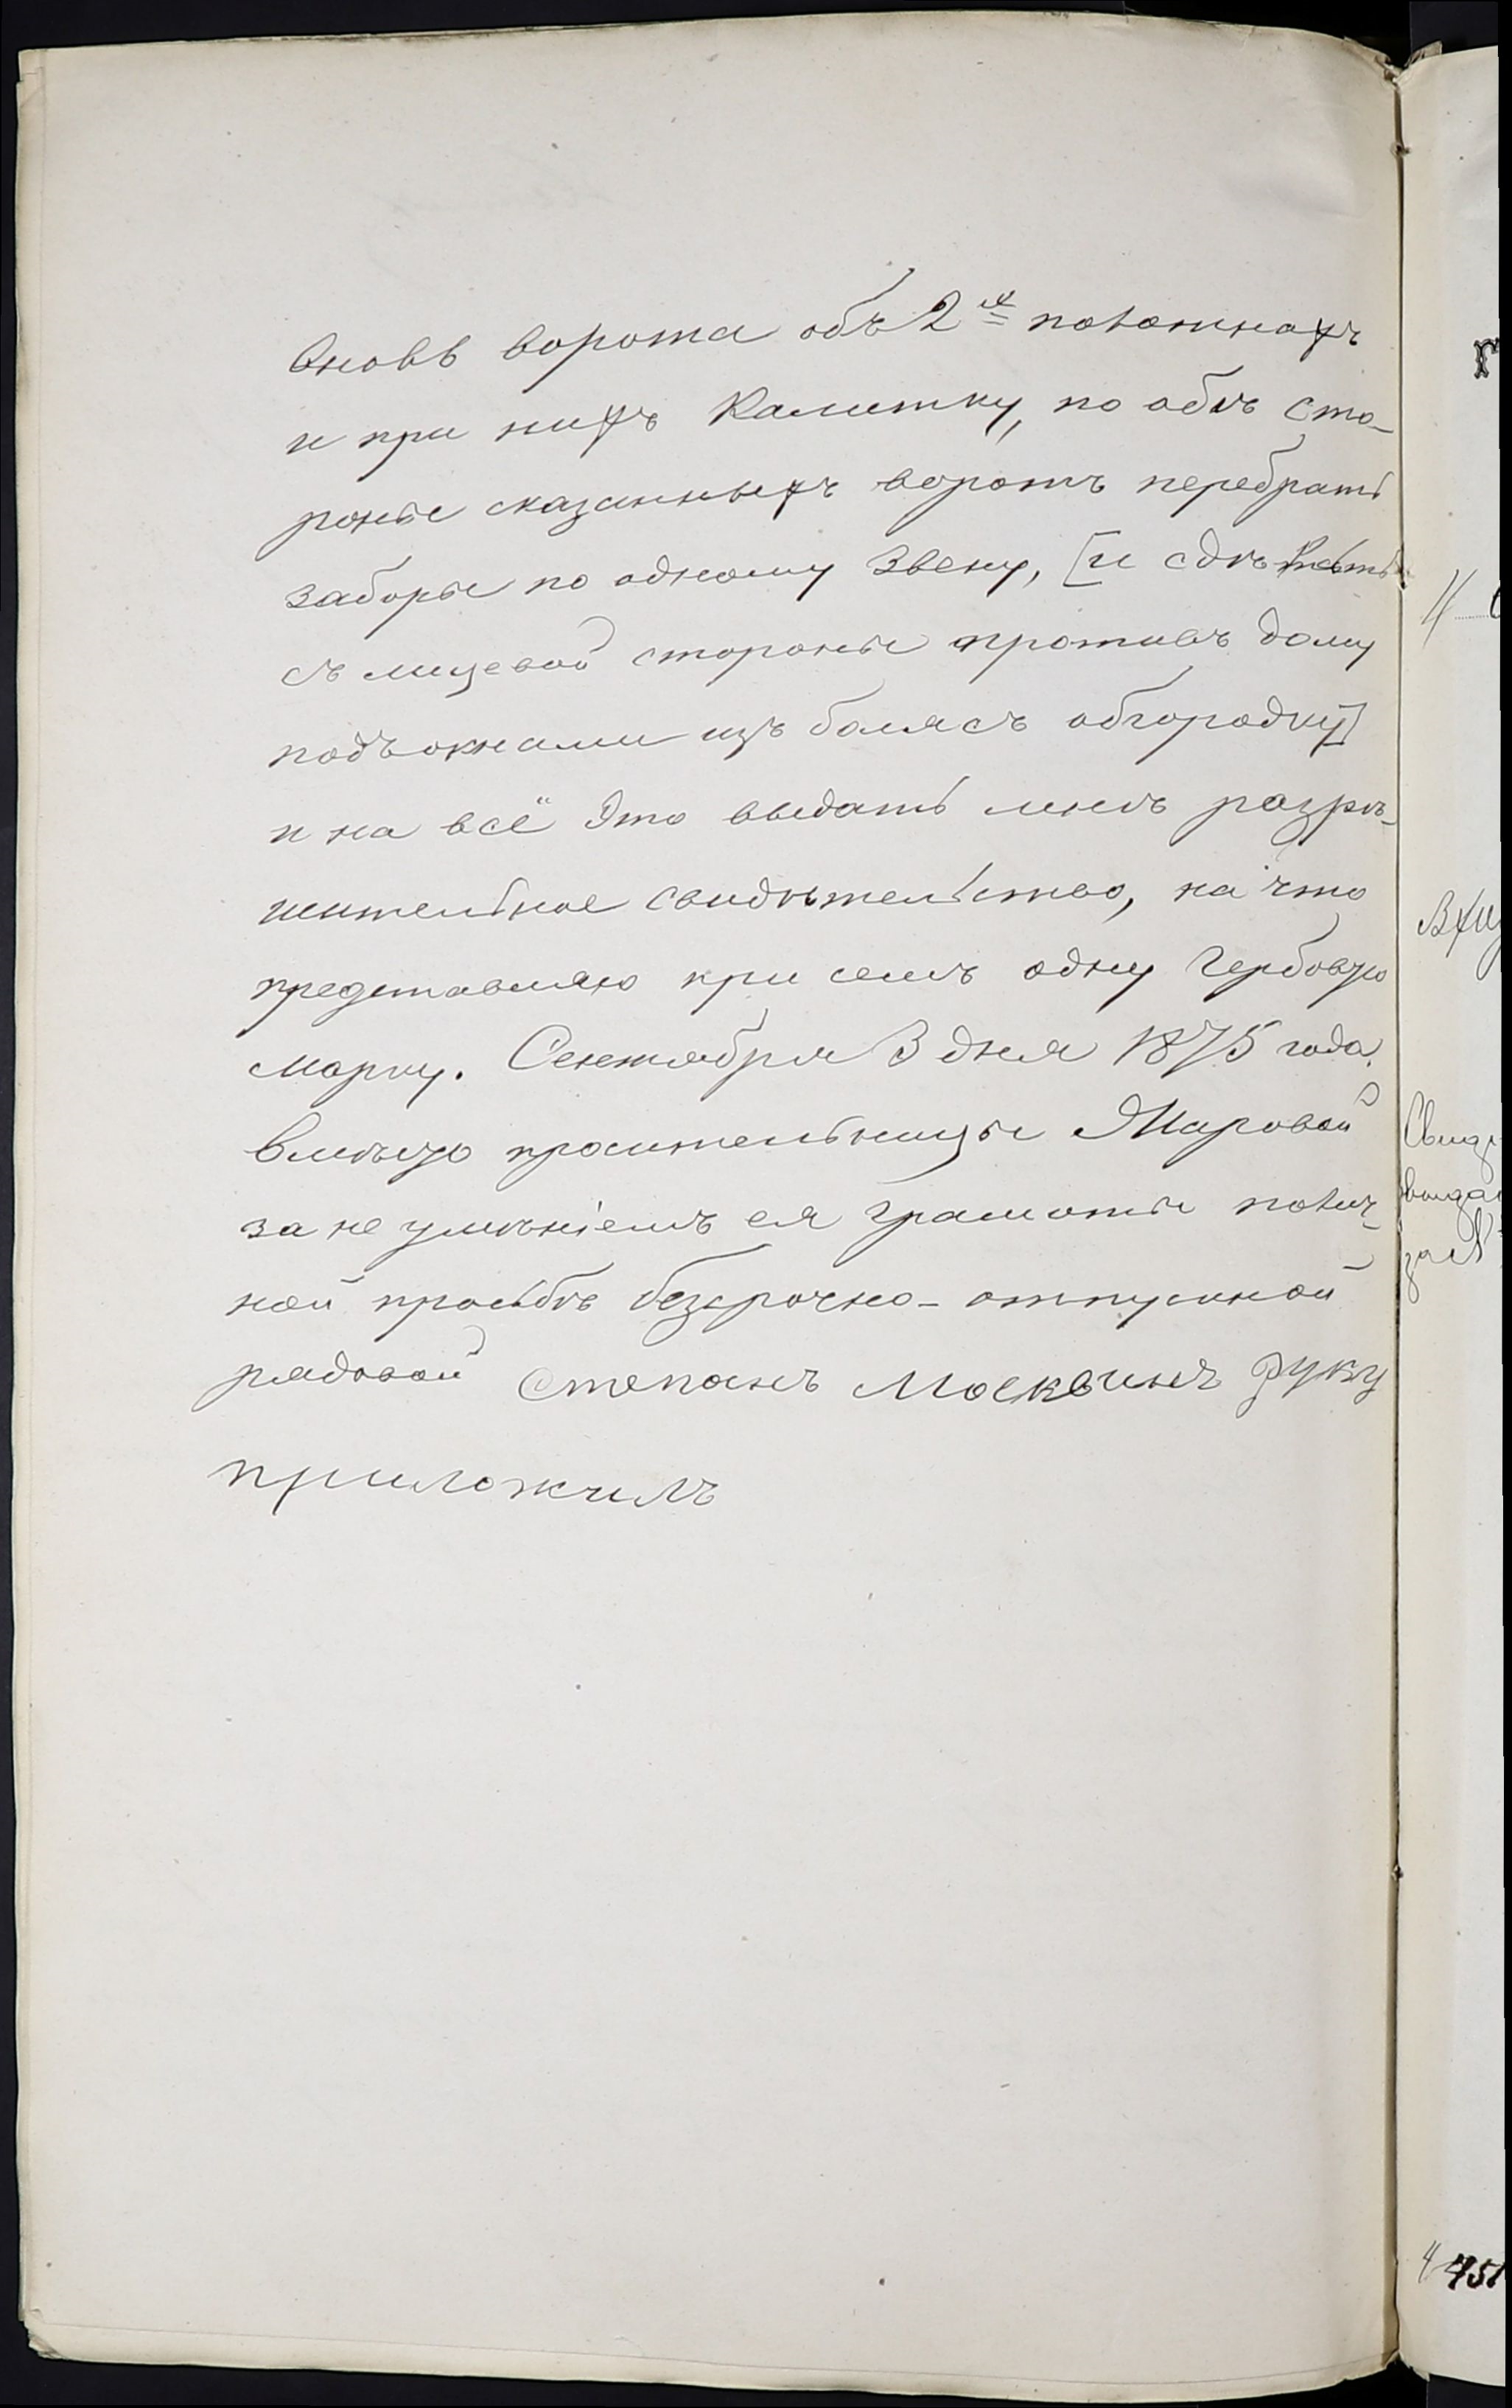 вновь ворота объ 2хъ половинахъ
и при нихъ Калитку, по обѣ сто-
роны сказанныхъ воротъ перебрать
заборы по одному звену, [и сдѣлать
съ лицевой стороны противъ дому
подъ окнами изъ балясъ обгородку]
и на всё это выдать мнѣ разрѣ-
шительное свидѣтельство, на что
представляю при семъ одну Гербовую
марку. Сентября 3 дня 1875 года.
Вмѣсто просительницы Шаровой
за не умѣніемъ ея Грамоты по лич-
ной просьбѣ безсрочно-отпускной
рядовой Степанъ Москвинъ руку
приложилъ